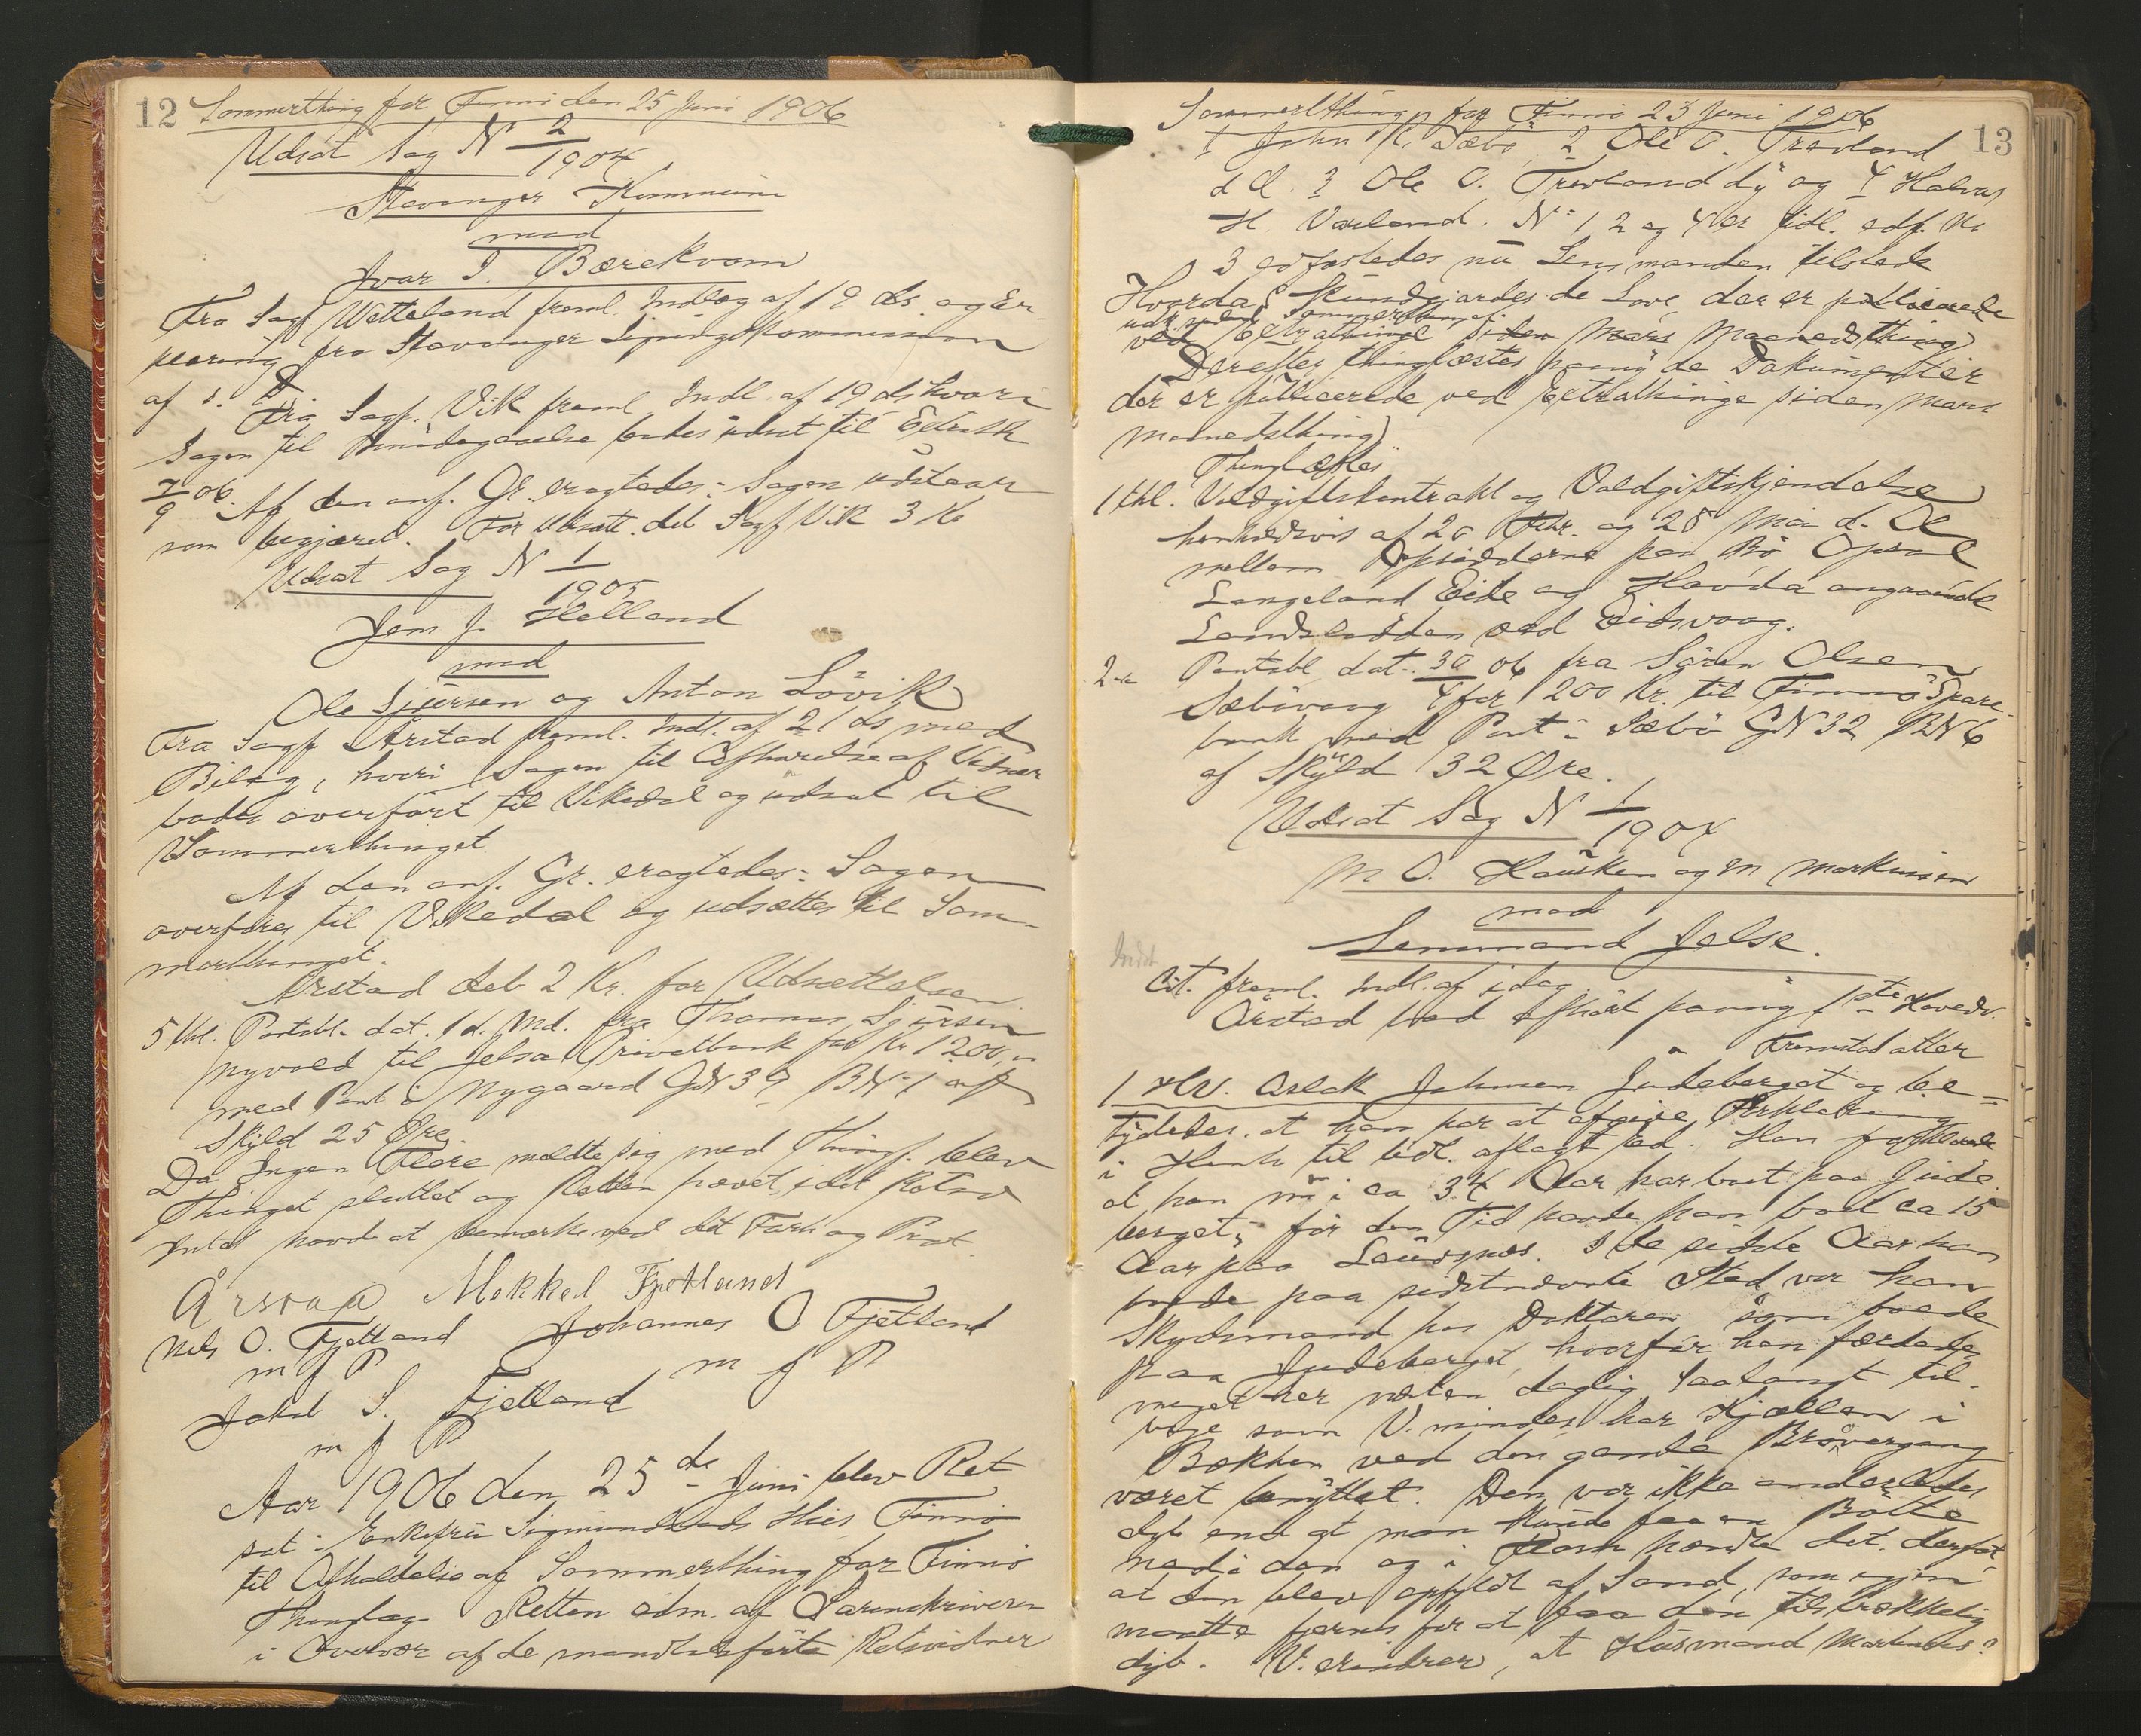 12 Sommerthing for Finnö den 25 Juni 1906
Udsat Sag N 2/1904
Stavanger Kommune
mod
Ivar T. Bærekvam
Fra Sagf. Watteland freml. Indlæg af 19 ds. og Er-
klæring fra Stavanger Ligningskommission
af s. D.
Fra Sagf. Vik freml Indl. af 19 ds hvori
Sagen til Imødegaaelse bedes udsat til Extrath
7/9 06. Af den anf. Gr. eragtedes: Sagen udstaar
som begjæret. For Udsætt. del Sagf Vik 3 Kr
Udsat Sag N 1/1905
Jens J. Helland
mod
Ole Sjursen og Anton Lövik
Fra Sagf. Årstad freml. Indl. af 21 ds med
Bilag, hvori Sagen til Afhørelse af Vidner
bedes overført til Vikedal og udsat til
Sommerthinget
Af den anf. Gr. eragtedes: Sagen
overføres til Vikedal og udsættes til Som-
merthinget.
Årstad deb 2 Kr. for Udsættelsen
5 thl. Pantobl. dat. 1 d. Md. fra Thomas Sjursen
Nyvold til Jelsa Privatbank for Kr 1200,
med Pant i Nygaard GN 39 BN 1 af
Skyld 25 Øre.
Da Ingen Flere meldte sig med Thingf. blev
Thinget sluttet og Retten hævet, idet Retsv
Intet havde at bemærke ved dets Form og Prot.
Årstad Mekkel Fjetland
Nels O. Fjetland Johannes O Fjetland
m f P m f P
Jakob S. Fjetland
m f P
Aar 1906 den 25de Juni blev Ret
sat i Enkefru Sigmundstads Hus, Finnö
til Afholdelse af Sommerthing for Finnö
Thinglag. Retten adm. af Sorenskriveren
i Overvær af de mandtalsførte Retsvidner
Sommerthing for Finnö 25 Juni 1906 13
1 John K. Sæbö, 2 Ole O. Trovland
d Æ. 3 Ole O. Trovland dy og 4 Halvor
H. Varland. N: 1, 2 og 4 er tidl. edf. No
3 edfæstedes nu Lensmanden tilstede
Hvorda kundgjordes de Love der er publicerede
ved Extrathinge siden Mars Maanedsthing
Derefter thinglæstes paany de Dokumenter
der er publicerede ved Extrathinge siden Mars
Maanedsthing
Thinglæstes
1 thl. Voldgiftskontrakt og Voldgiftskjendelse
henholdsvis af 20 Febr. og 28 Mai d. A.
mellem Opsidderne paa Bö Opsal
Langeland Eide og Havda angaaende
Landsledden ved Eidsvaag.
2 Pantobl. dat. 30/4 06 fra Sören Olsen
Sæbövaag for 200 Kr. til Finnö Spare-
bank med Pant i Sæbö GN 32 BN 6
af Skyld 32 Øre.
Udsat Sag N 1/1904
M O. Hausken og M Markussen
mod
Lensmand Jelse.
Cit. freml. Indl. af idag
Årstad bad afhørt paany 1ste Hovedv.
Fremstod atter
1 HV. Aslak Johnsen Judeberget og be-
tydedes, at han har at afgive Forklaring
i Henh. til tidl. aflagt Ed. Han forklarede
at han nu i ca 34 Aar har boet paa Jude-
berget; før den Tid havde han boet ca 15
Aar paa Laugsnes. I de sidste Aar han
boede paa sidstnævnte Sted, var han
Skydsmand hos Doktoren som boede
paa Judeberget, hvorfor han færdedes
meget her næsten daglig. Saalangt til-
bage som V. mindes har Kjælden i
Bækken ved den gamle Broovergang
været benyttet. Den var ikke anderledes
dyb end at man kunde faa en Bøtte
ned i den og i Flom hændte det. derfor
at den blev opfyldt af Sand, som igjen
maatte fjernes for at faa den tilstrækkelig
dyb. V. erindrer, at Husmand Martinus